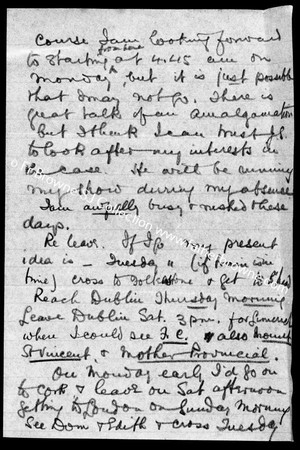 course I am looking forward
from here
to starting at 4.45 am on
Monday but it is just possible
that I may not go. There is
great talk of an amalgamation
But I think I can trust
to look after my interests in
case. He will be running
my show during my absence
I am awfully busy & rushed these
days.
Re leave. If I go my present
idea is – Tuesday (if train is in
time) cross to Folkestone & get to
Reach Dublin Thursday morning
Leave Dublin Sat. 3 p.m. for Limerick
when I could see F.C. & also Mount
St Vincent, & Mother Provincial.
On Monday early I'd go on
to Cork & leave on Sat afternoon
getting to London on Sunday morning
See Dom & Edith & cross Tuesday